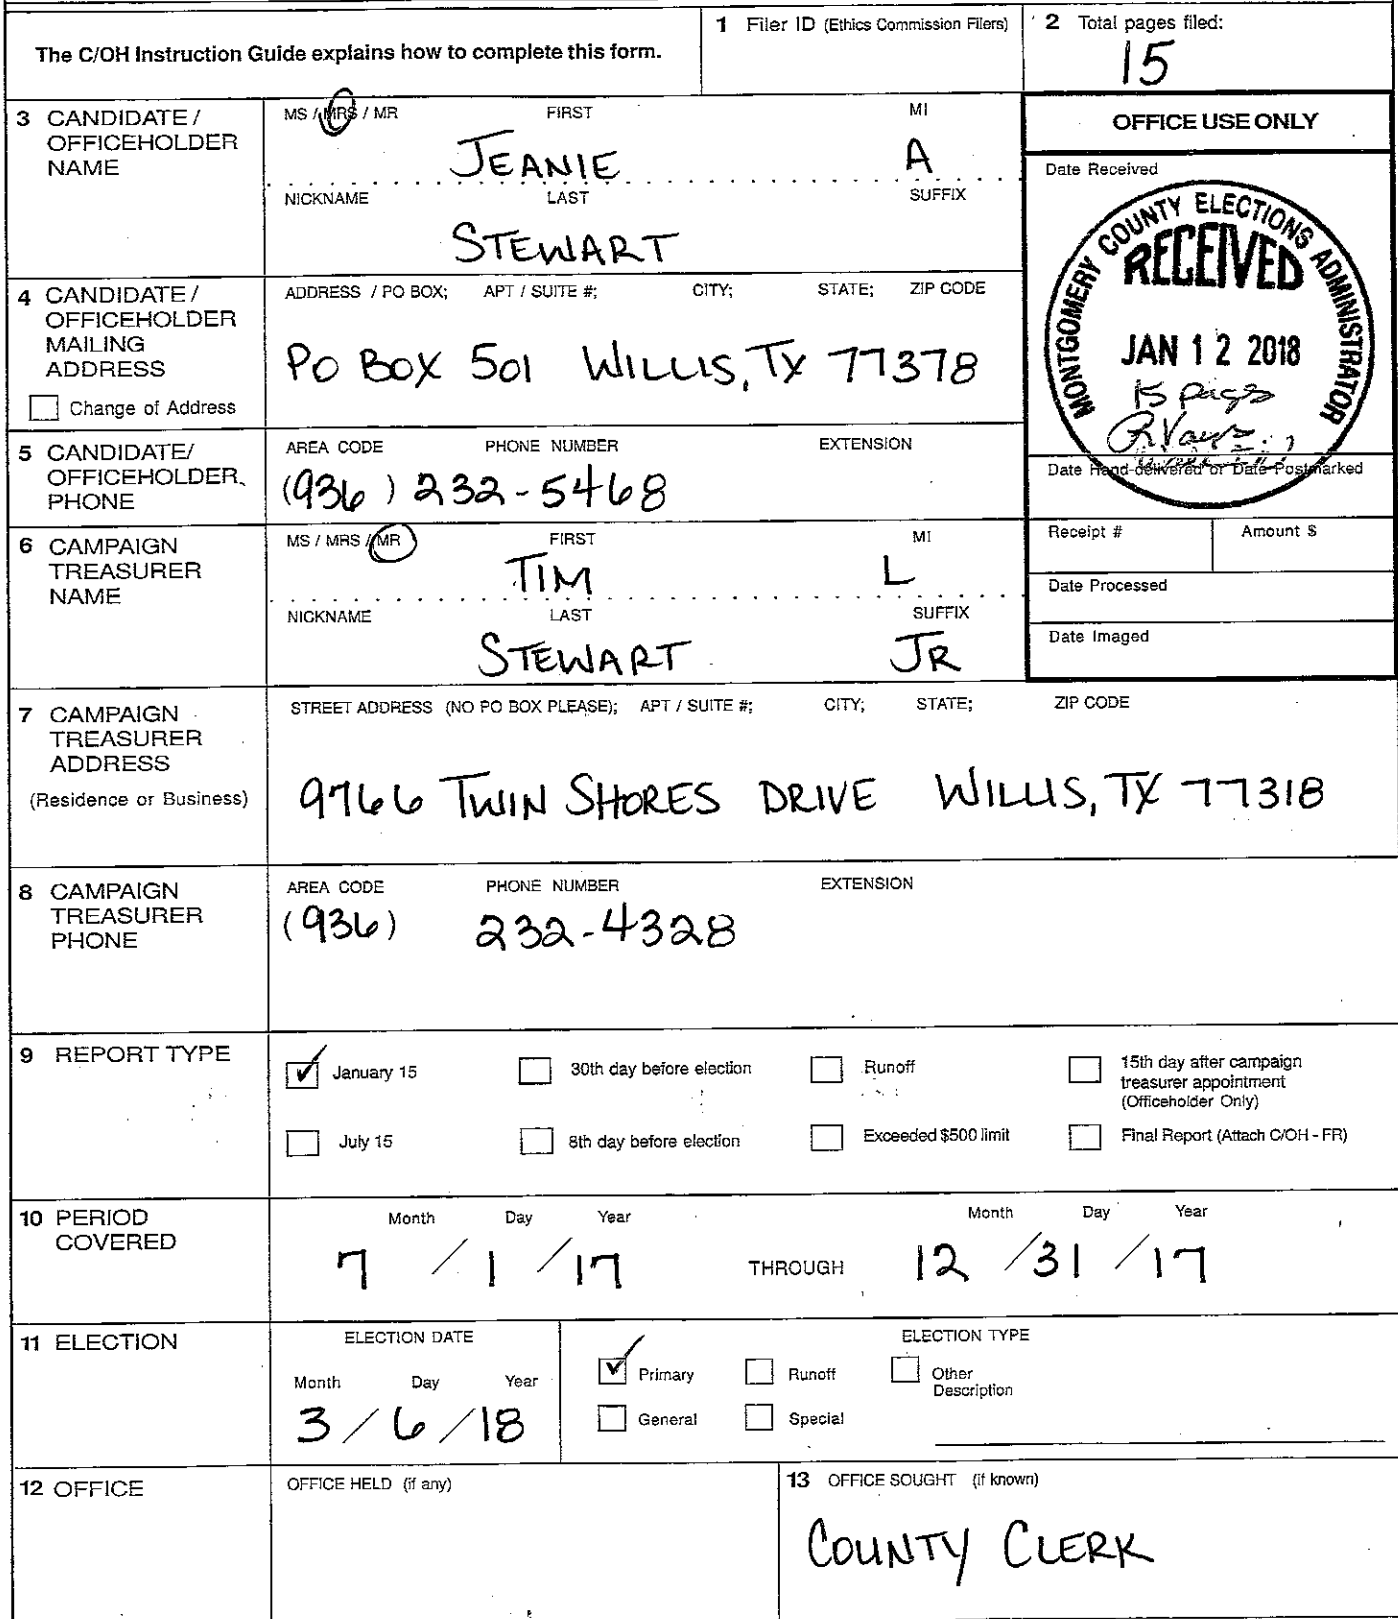 The C/OH Instruction Guide explains how to complete this form.
1 Filer ID (Ethics Commission Filers)
2 Total pages filed:
15
3 CANDIDATE /
OFFICEHOLDER
NAME
MS / MRS / MR FIRST MI
JEANIE A
NICKNAME LAST SUFFIX
STEWART
OFFICE USE ONLY
Date Received
MONTGOMERY COUNTY ELECTIONS ADMINISTRATOR
RECEIVED
JAN 12 2018
15 pages
Date Hand-delivered or Date Postmarked
Receipt # Amount $
Date Processed
Date Imaged
4 CANDIDATE /
OFFICEHOLDER
MAILING
ADDRESS
Change of Address
ADDRESS / PO BOX; APT / SUITE #; CITY; STATE; ZIP CODE
PO BOX 501 WILLIS, TX 77378
5 CANDIDATE/
OFFICEHOLDER
PHONE
AREA CODE PHONE NUMBER EXTENSION
(936) 232-5468
6 CAMPAIGN
TREASURER
NAME
MS / MRS / MR FIRST MI
TIM L
NICKNAME LAST SUFFIX
STEWART JR
7 CAMPAIGN
TREASURER
ADDRESS
(Residence or Business)
STREET ADDRESS (NO PO BOX PLEASE); APT / SUITE #; CITY; STATE; ZIP CODE
9766 TWIN SHORES DRIVE WILLIS, TX 77318
8 CAMPAIGN
TREASURER
PHONE
AREA CODE PHONE NUMBER EXTENSION
(936) 232-4328
9 REPORT TYPE
January 15 30th day before election Runoff 15th day after campaign
treasurer appointment
(Officeholder Only)
July 15 8th day before election Exceeded $500 limit Final Report (Attach C/OH - FR)
10 PERIOD
COVERED
Month Day Year Month Day Year
7 / 1 / 17 THROUGH 12 / 31 / 17
11 ELECTION
ELECTION DATE
Month Day Year
3 / 6 / 18
ELECTION TYPE
Primary Runoff Other
Description
General Special
12 OFFICE
OFFICE HELD (if any)
13 OFFICE SOUGHT (if known)
COUNTY CLERK